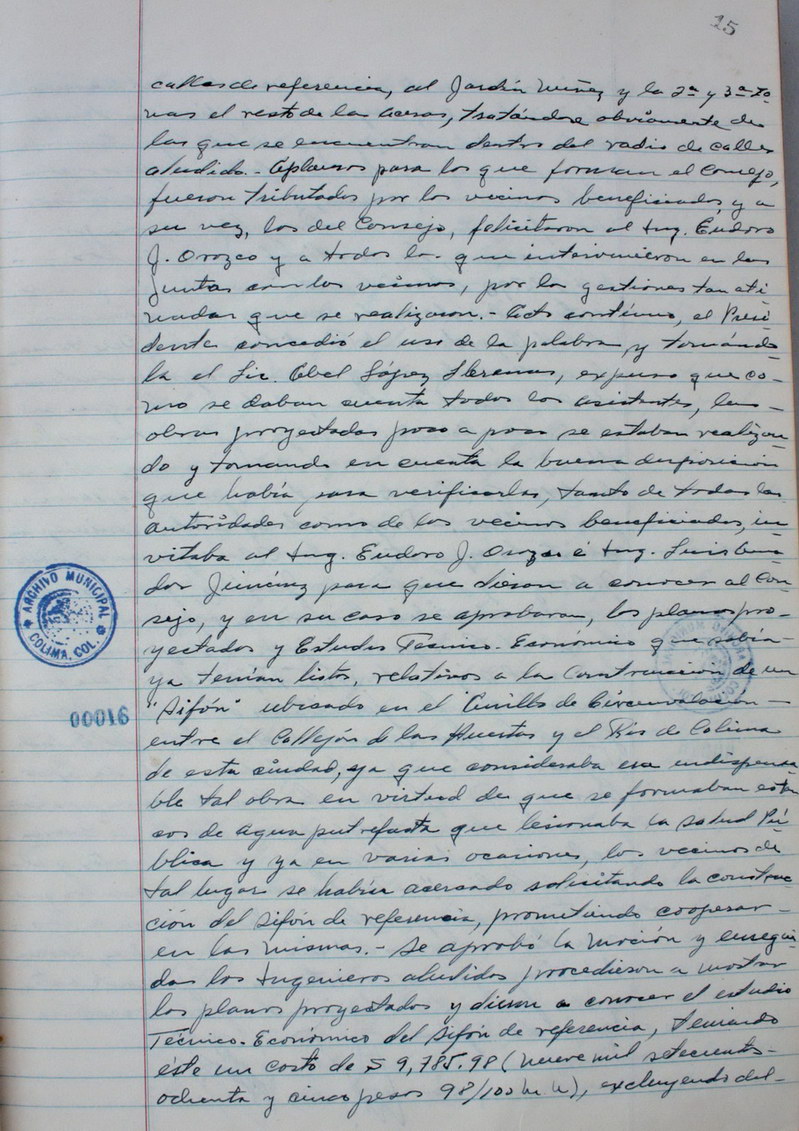 15
calles de referencia, al Jardín Núñez y la 2ª y 3ª Zo-
nas el resto de las aceras, tratándose obviamente de
las que se encuentran dentro del radio de calles
aludido.- Aplausos para los que forman el Consejo,
fueron tributados por los vecinos beneficiados, y a
su vez, los del Consejo, felicitaron al Ing. Eudoro
J. Orozco y a todos los que intervinieron en las
juntas con los vecinos, por las gestiones tan ati-
nadas que se realizaron.- Acto contínuo, el Presi-
dente concedió el uso de la palabra, y tomándo-
la el Lic. Abel López Llerenas, expuso que co-
mo se daban cuenta todos los asistentes, las-
obras proyectadas poco a poco se estaban realizan-
do y tomando en cuenta la buena disposición
que había para verificarlas, tanto de todas las
autoridades como de los vecinos beneficiados, in-
vitaba al Ing. Eudoro J. Orozco é Ing. Luis
Jiménez para que dieran a conocer al Con-
sejo, y en su caso se aprobaran, los planos pro-
yectados y Estudio Técnico-Económico que
ya tenían listos, relativos a la Construcción de un
"Sifón" ubicado en el Anillo de Circunvalación-
entre el Callejón de las Huertas y el Río de Colima
de esta ciudad, ya que consideraba era indispensa-
ble tal obra en virtud de que se formaban estan-
cos de agua putrefacta que lesionaba la salud Pú-
blica y ya en varias ocasiones, los vecinos de
tal lugar se habían acercado solicitando la construc-
ción del sifón de referencia, prometiendo cooperar-
en las mismas.- Se aprobó la moción y ensegui-
das los Ingenieros aludidos procedieron a mostrar
los planos proyectados y dieron a conocer el estudio
Técnico-Económico del sifón de referencia, teniendo
éste un costo de $ 9,785.98 (nueve mil setecientos-
ochenta y cinco pesos 98/100 m.n), excluyendo del-
ARCHIVO MUNICIPAL
COLIMA, COL.
00016